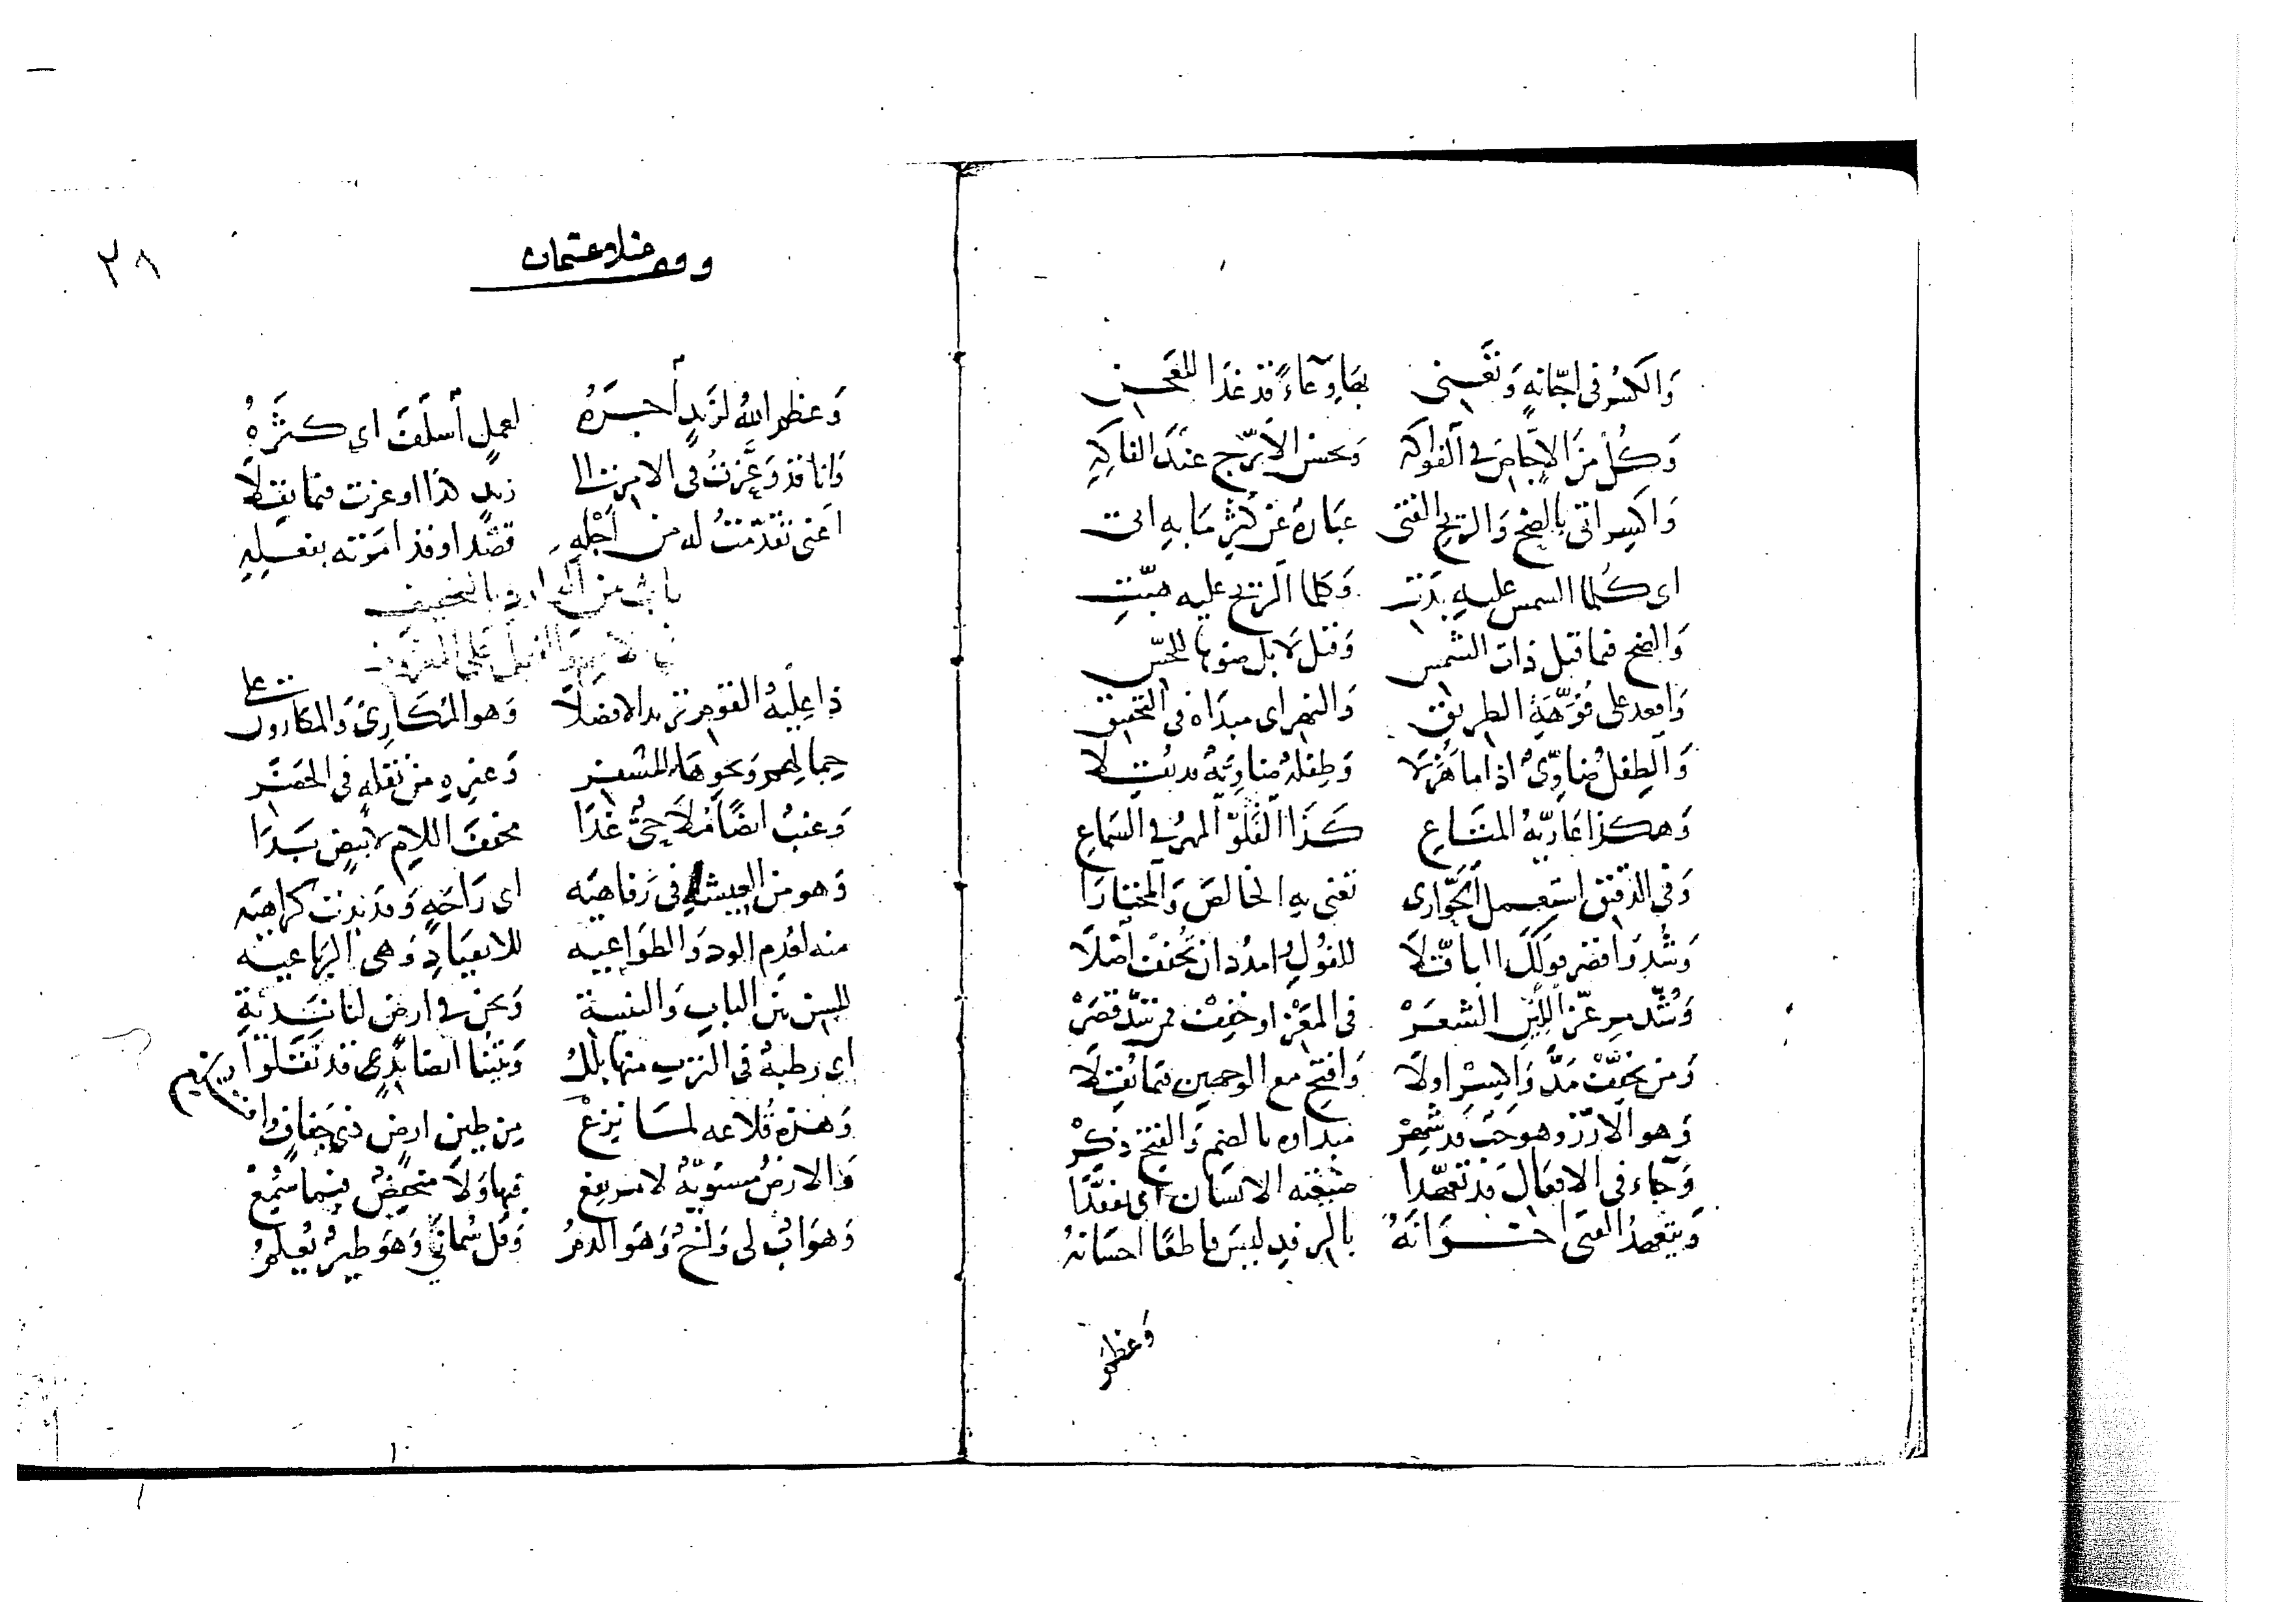 وَاكسُر في اجّانةٍ وَتَعْني بهَا وِعَاءً قد غدَا للعَجن
وَكُل مِنَ الاِجَّاصِ في الفواكه وَبحسن الاُترجّ عند الفاكِهِ
وَاكسر اتى بالضح وَالريح الفتى عبَارةً عن كثرِ مَا به اتى
اى كلما الشمس عليهِ بَدَتِ وَكلما الريح عليه هبّتِ
وَالضح فيما قيل ذات الشمس وَقيل لا بل ضوءها للحسّ
وَاقعد على فُوَّهَةِ الطريق وَالنهر اى مبدَاهُ في التحقيق
وَالطفلُ ضاوِىٌّ اذا ما هُزِلا وَطفلةٌ ضاوِيّةٌ قد نقلا
وَهكذا عَاريّةُ المتَاعِ كَذَا الفَلُوّ المهرُ في السَماعِ
وَفي الدقيق استعمل الحُوّارى تعنى به الخالصَ وَالمختارَا
وَشُدِّدَ اقصر قولكَ الباقلّا للفول امدُد ان تُخففْ اصْلا
وَشُدّ مِرعِزّ اللين الشعَرْ في المعْزِ او خففْ فمن شدّ قصَرْ
وَمن يخفِّفْ مَدَّ وَاكسِرْ اولا وَافتح مع الوجهين فيما نقلا
وَهو الارُزّ وهو حَب قد شهِرْ مبداوه بالضم وَالفتح ذكِرْ
وَجاء في الافعَال قد تعهّدا ضيعته الانسان اى تفقّدَا
وَيتعهدُ الفتى اخوَانَهُ بالرفدِ ليسَ قاطعًا احسَانهُ
وَعظم
٢٨
وقف منلا عثمان
وَعظم اللهُ لزَيدٍ أجرَهُ لعملٍ أسلَفَ اى كثَّرهُ
وَانا قد وَعَّزتُ في الامر الى زيدٍ كذا اوعزت فيما نقلا
اعنى تقدّمتُ له من اَجْلِهِ قصْدًا وقد امَرته بفعلِهِ
ذا عِلْيةُ القوم تريد الافضلا وَهو المُكَارِى وَالمكارون على
جمالهم وَنحوهَا للسفر وَغيره من نقلهِ في الحضَر
وَعنبٌ ايضًا مُلَاحِىٌّ غدَا مخفف اللام لابيض بَدَا
وَهو من العيشة في رَفاهيَه اى رَاحَةٍ وَقد بدت كراهيَه
منه لقدم الود وَالطوَاعيه للانقيَادِ وَهى الرباعيه
للسن بين الناب وَالثنية وَنحن في ارض لنا نَدِيّةِ
اى رطبةٌ في الترب منها بلَلُ وَبيننا ايضا
وَهذه قُلَاعه لمَا نزعْ من طين ارض ذى جفافٍ
وَالارضُ مستويةٌ لا مرتفع فيهَا وَلا منخفضٌ فيما سُمِعْ
وَهوَ ابٌ لى وَاخٌ وَهوَ الدمُ وَقل سُمانى وَهوَ طيرٌ يُعلمُ